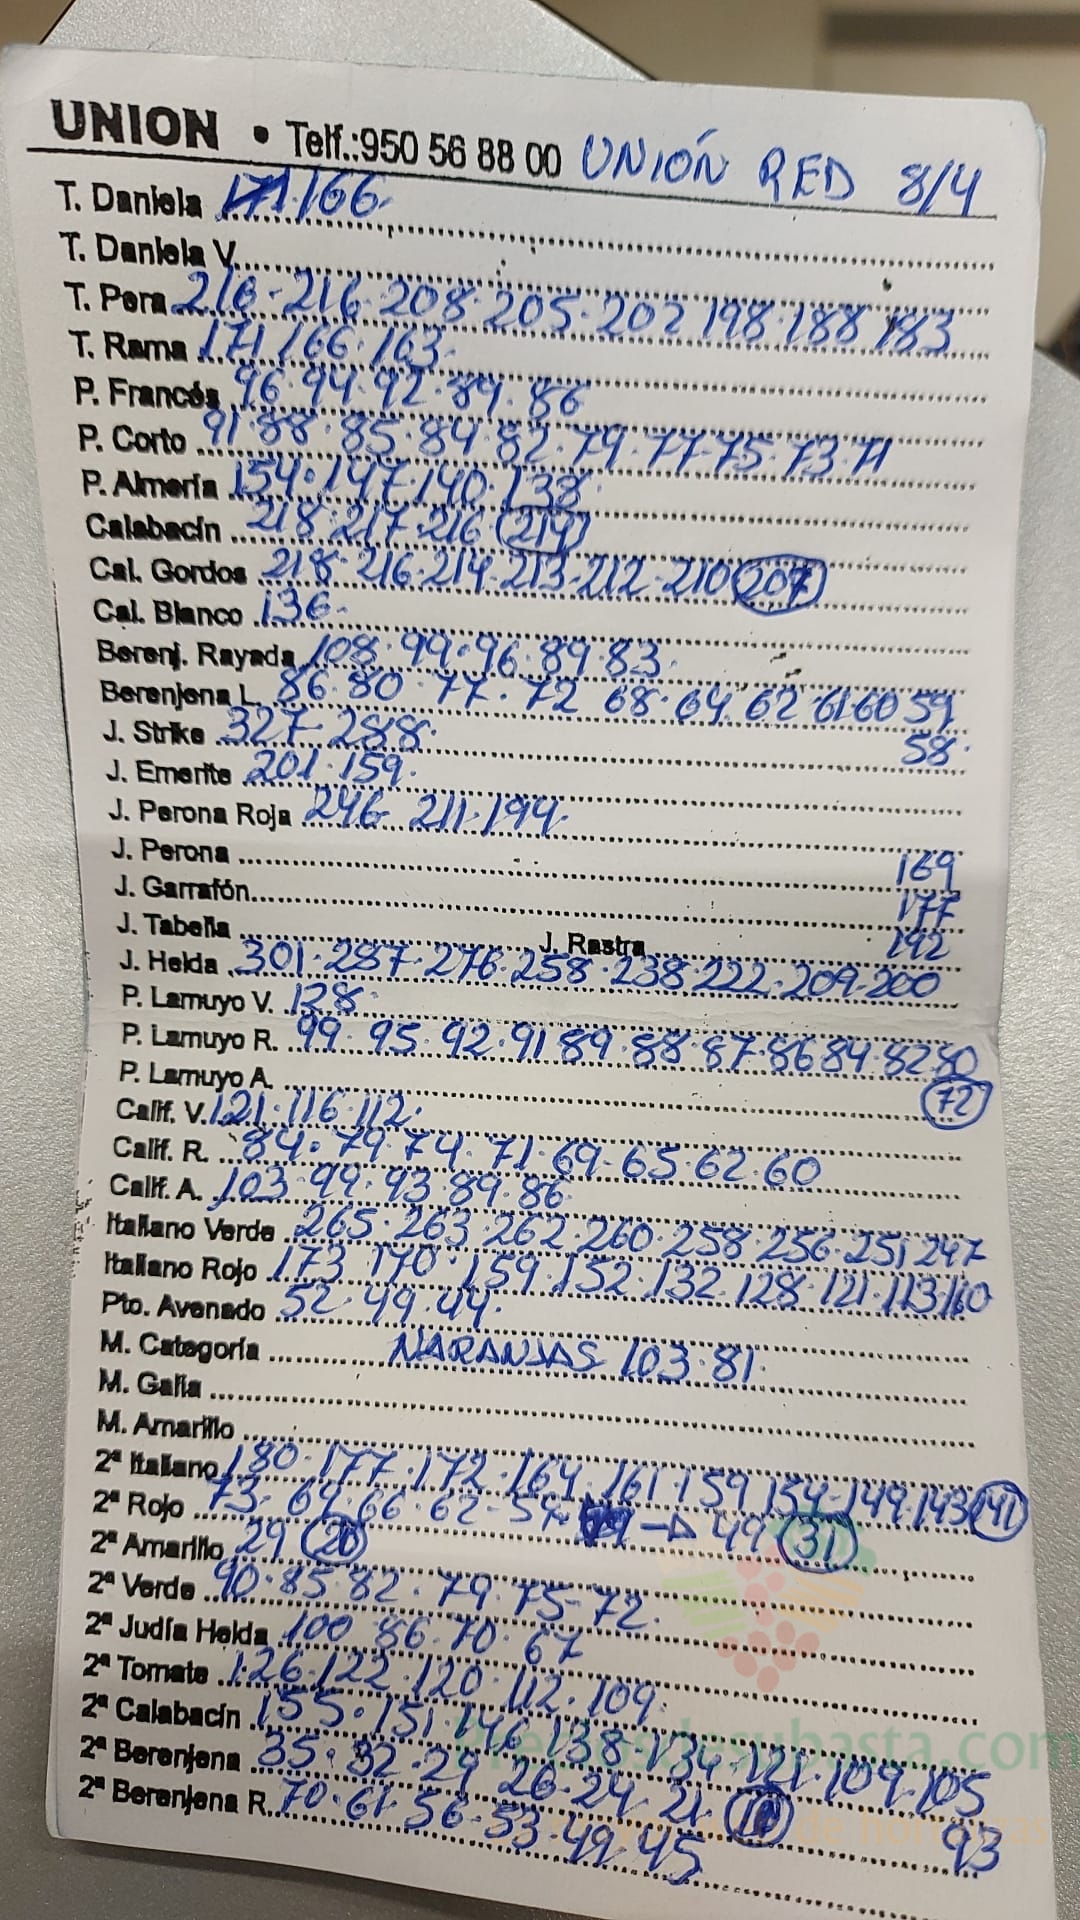 UNION • Telf.:950 56 88 00 UNIÓN RED 8/4
T. Daniela 171.166.
T. Daniela V.
T. Pera 216-216-208-205-202 198-188 183
T. Rama 171 166.163.
P. Francés 96.94.92.89.86
P. Corto 91.88.85.84.82.79.77.75.73.71
P. Almería 154.147.140.138
Calabacín 218.217.216 (214)
Cal. Gordos 218.216.214.213.212.210 (207)
Cal. Blanco 136.
Berenj. Rayada 108.99.96.89.83.
Berenjena L. 86.80.77.72 68.64.62 61.60 59
J. Strike 327-288. 58.
J. Emerite 201.159.
J. Perona Roja 246 211.194.
J. Perona 169
J. Garrafón 177
J. Tabella J. Rastra 192
J. Helda 301.287.276.258.238.222.209.200
P. Lamuyo V. 128.
P. Lamuyo R. 99.95.92.91 89.88.87.86 84.82 80
P. Lamuyo A. (72)
Calif. V. 121.116.112.
Calif. R. 84.79.74.71.69.65.62.60
Calif. A. 103.99.93.89.86
Italiano Verde 265.263.262.260.258.256.251 247
Italiano Rojo 173 170.159.152.132.128.121.113.110
Pto. Avenado 52.49.44.
M. Categoría NARANJAS 103.81.
M. Galia
M. Amarillo
2ª Italiano 180.177.172.164.161.159 154-149.143 (141)
2ª Rojo 73. 66.62-54 → 49 (31)
2ª Amarillo 29 (20)
2ª Verde 90.85.82.79.75-72.
2ª Judía Helda 100 86.70.67
2ª Tomate 126.122.120.112.109.
2ª Calabacín 155.151.146.138.134.121.109.105
2ª Berenjena 35.32-29 26-24.21. 93
2ª Berenjena R. 70.61.56-53.49.45
Preciosdesubasta.com
de hortalizas